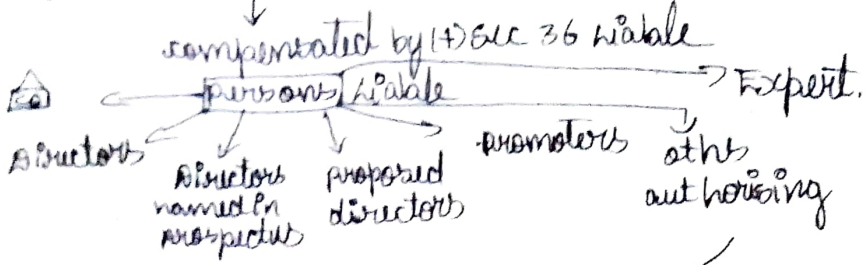 compensated by (+) Sec 36 Liable
Co persons Liable Expert.
Directors Directors named in prospectus proposed directors promoters oths authorising